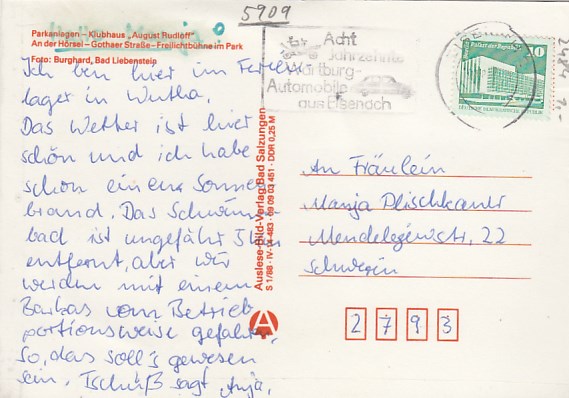 5909
Parkanlagen – Klubhaus „August Rudloff"
An der Hörsel – Gothaer Straße – Freilichtbühne im Park
Foto: Burghard, Bad Liebenstein
Ich bin hier im Ferien-
lager in Wutha.
Das Wetter ist hier
schön und ich habe
schon einen Sonnen
brand. Das Schwimm
bad ist ungefähr 5 km
entfernt, aber wir
werden mit einem
Barkas vom Betrieb
portionsweise gefahren.
So, das soll's gewesen
sein. Tschüß sagt Anja.
Auslese-Bild-Verlag Bad Salzungen
S 1/88 · IV-14-483 · 09 09 03 451 · DDR 0,25 M
Acht
Jahrzehnte
Wartburg-
Automobile
aus Eisenach
Palast der Republik
10
An Fräulein
Manja Plischkaner
Mendelejewstr. 22
Schwerin
2 7 9 3